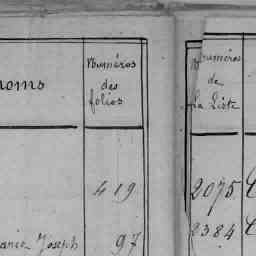 noms
Numéros
des
folios
Numéros
de
la Liste
419
2075
Joseph
97
2384